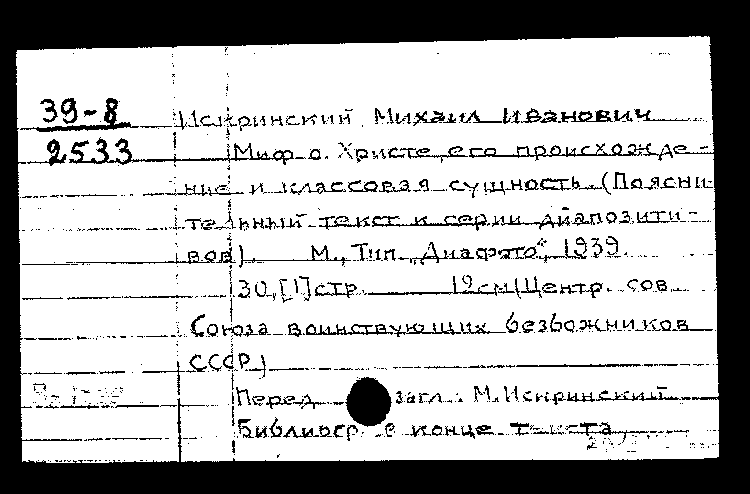 39-8
2533
Искринский Михаил Иванович
Миф о Христе, его происхожде-
ние и классовая сущность. (Поясни-
тельный текст к серии диапозити-
вов). М., Тип. „Диафото“, 1939.
30, [1] стр. 12 см (Центр. сов.
Союза воинствующих безбожников
СССР)
Перед загл.: М. Искринский
Библиогр. в конце текста